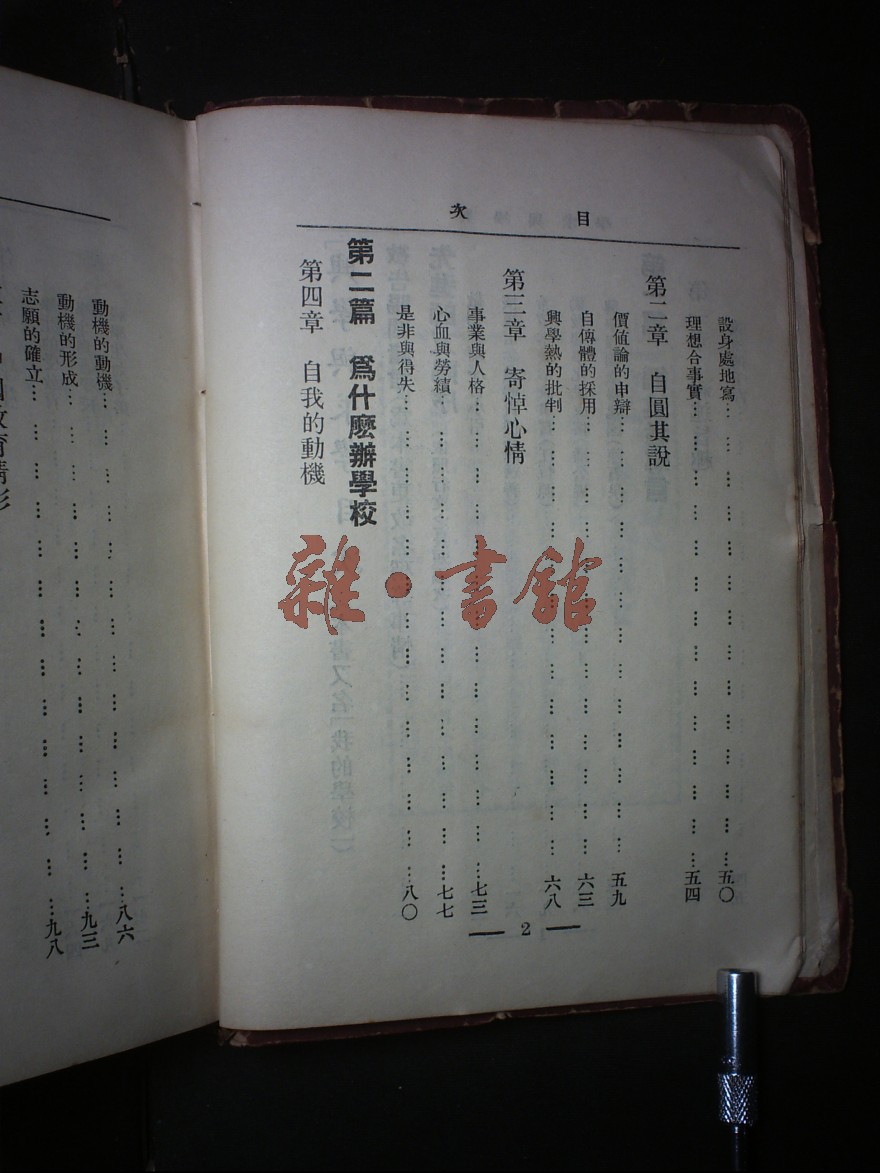 目次
設身處地寫…五〇
理想合事實…五四
第二章　自圓其說
價値論的申辯…五九
自傳體的採用…六三
興學熱的批判…六八
第三章　寄悼心情
事業與人格…七三
心血與勞績…七七
是非與得失…八〇
第二篇　爲什麼辦學校
第四章　自我的動機
2
動機的動機…八六
動機的形成…九三
志願的確立…九八
雜·書館